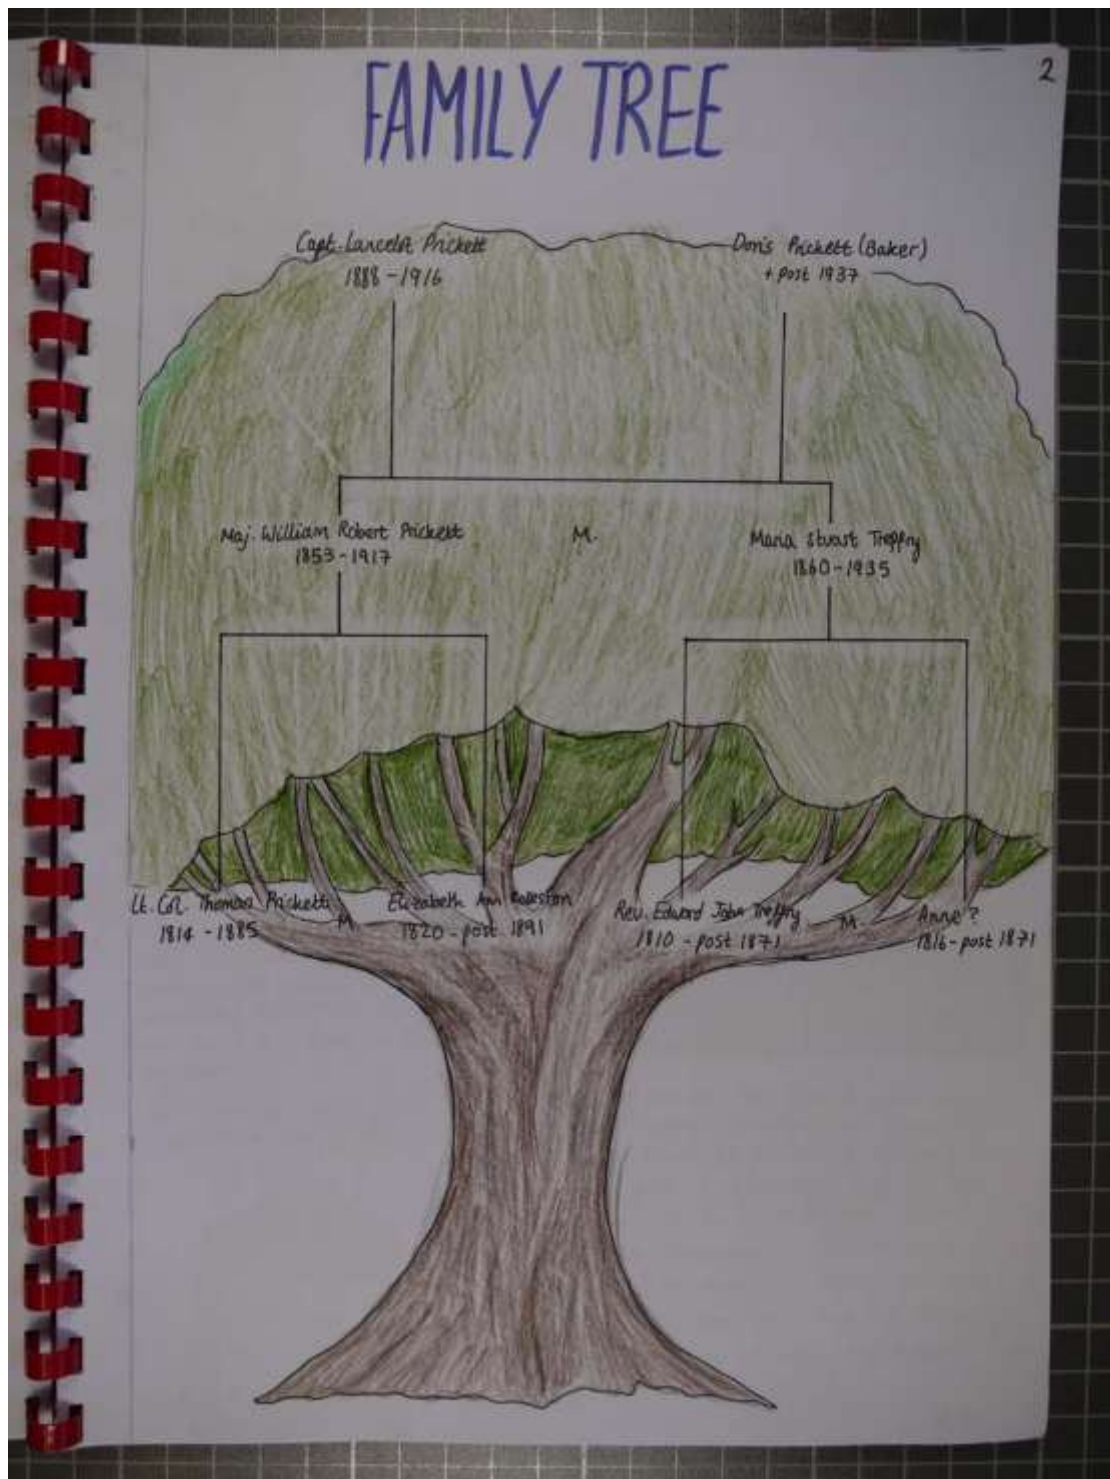 2
FAMILY TREE
Capt. Lancelot Prickett
1888 - 1916
Doris Prickett (Baker)
+ post 1937
Maj. William Robert Prickett
1853 - 1917
M.
Maria Stuart Treffry
1860 - 1935
Lt. Col. Thomas Prickett
1814 - 1885
M.
Elizabeth Ann
1820 - post 1891
Rev. Edward John Treffry
1810 - post 1871
M.
Anne ?
1816 - post 1871